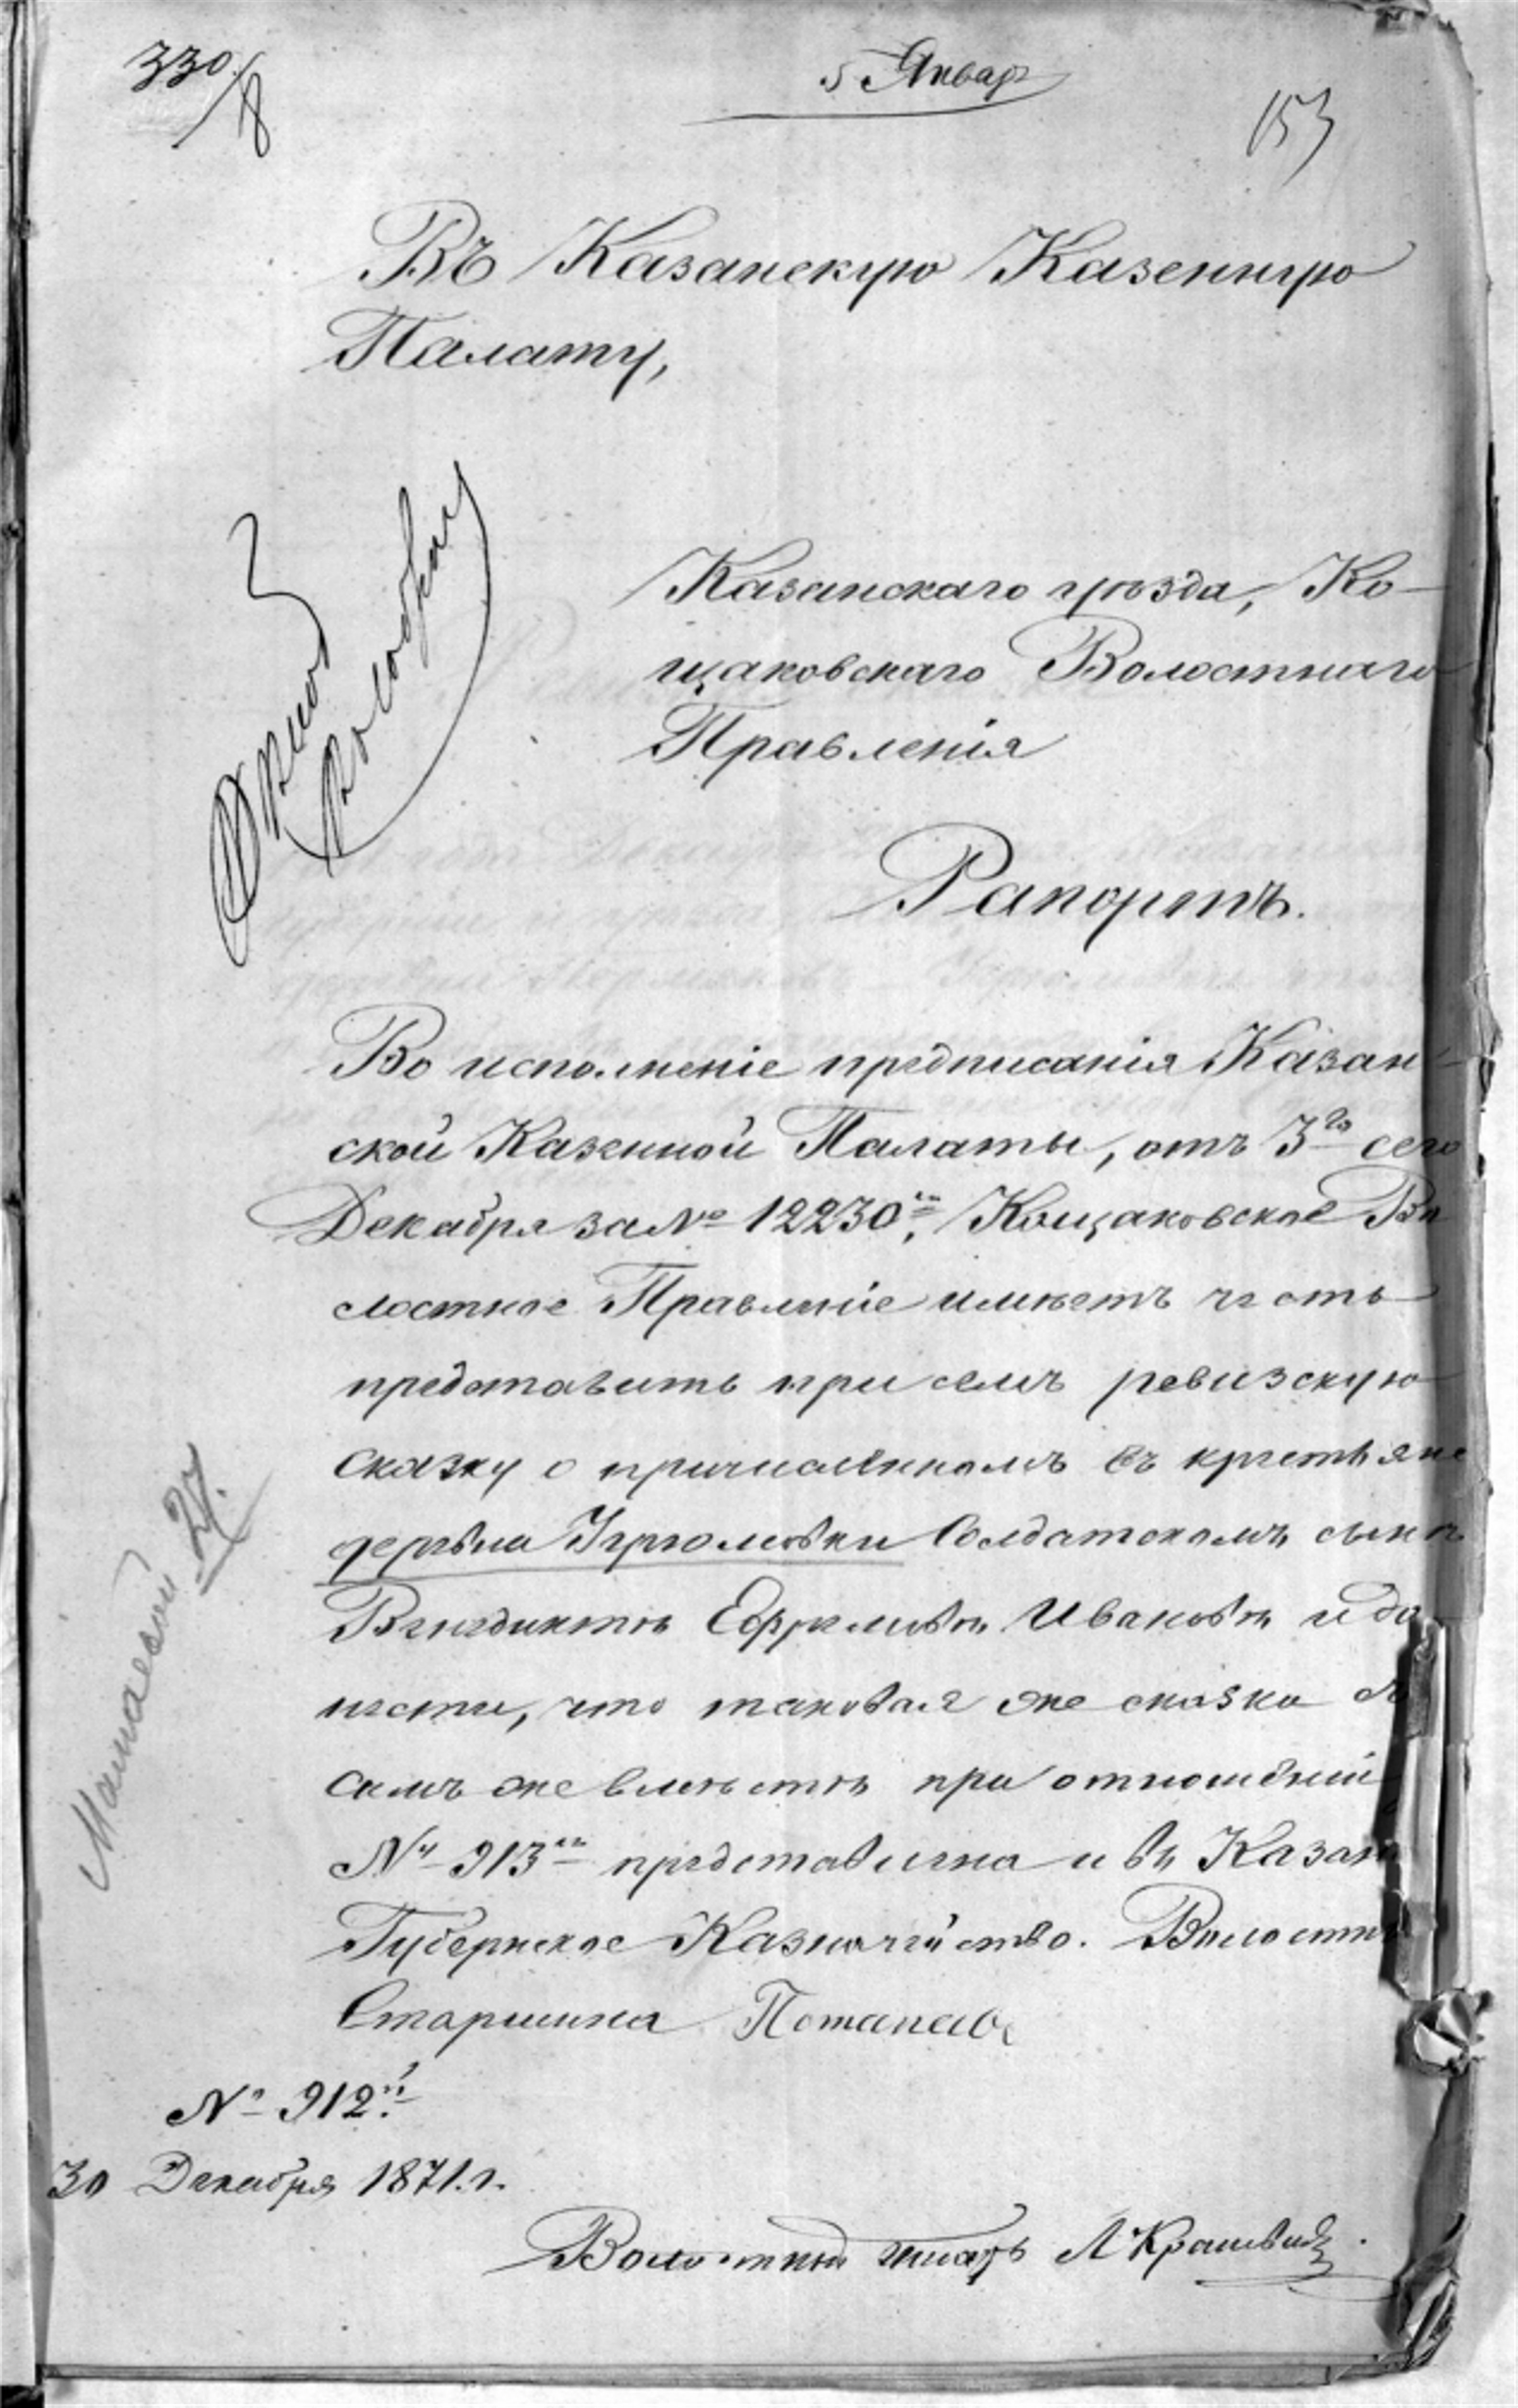 330/8
5 Январ
153
Въ Казанскую Казенную
Палату,
Казанскаго уѣзда, Ко-
щаковскаго Волостнаго
Правленія
Рапортъ.
Во исполненіе предписанія Казан-
ской Казенной Палаты, отъ 3го сего
Декабря за № 12230мъ, Кощаковское Во
лостное Правленіе имѣетъ честь
представить при семъ ревизскую
сказку о причисленномъ въ крестьяне
деревни Солдатскомъ сынѣ
Венедиктѣ Ефремовѣ Ивановѣ и до
нести, что таковая же сказка съ
симъ же вмѣстѣ при отношеніи
№ 913мъ представлена и въ Казан
Губернское Казначейство. Волостн
Старшина Потапов
№ 912й
30 Декабря 1871 г.
Волостный писарь А
27.